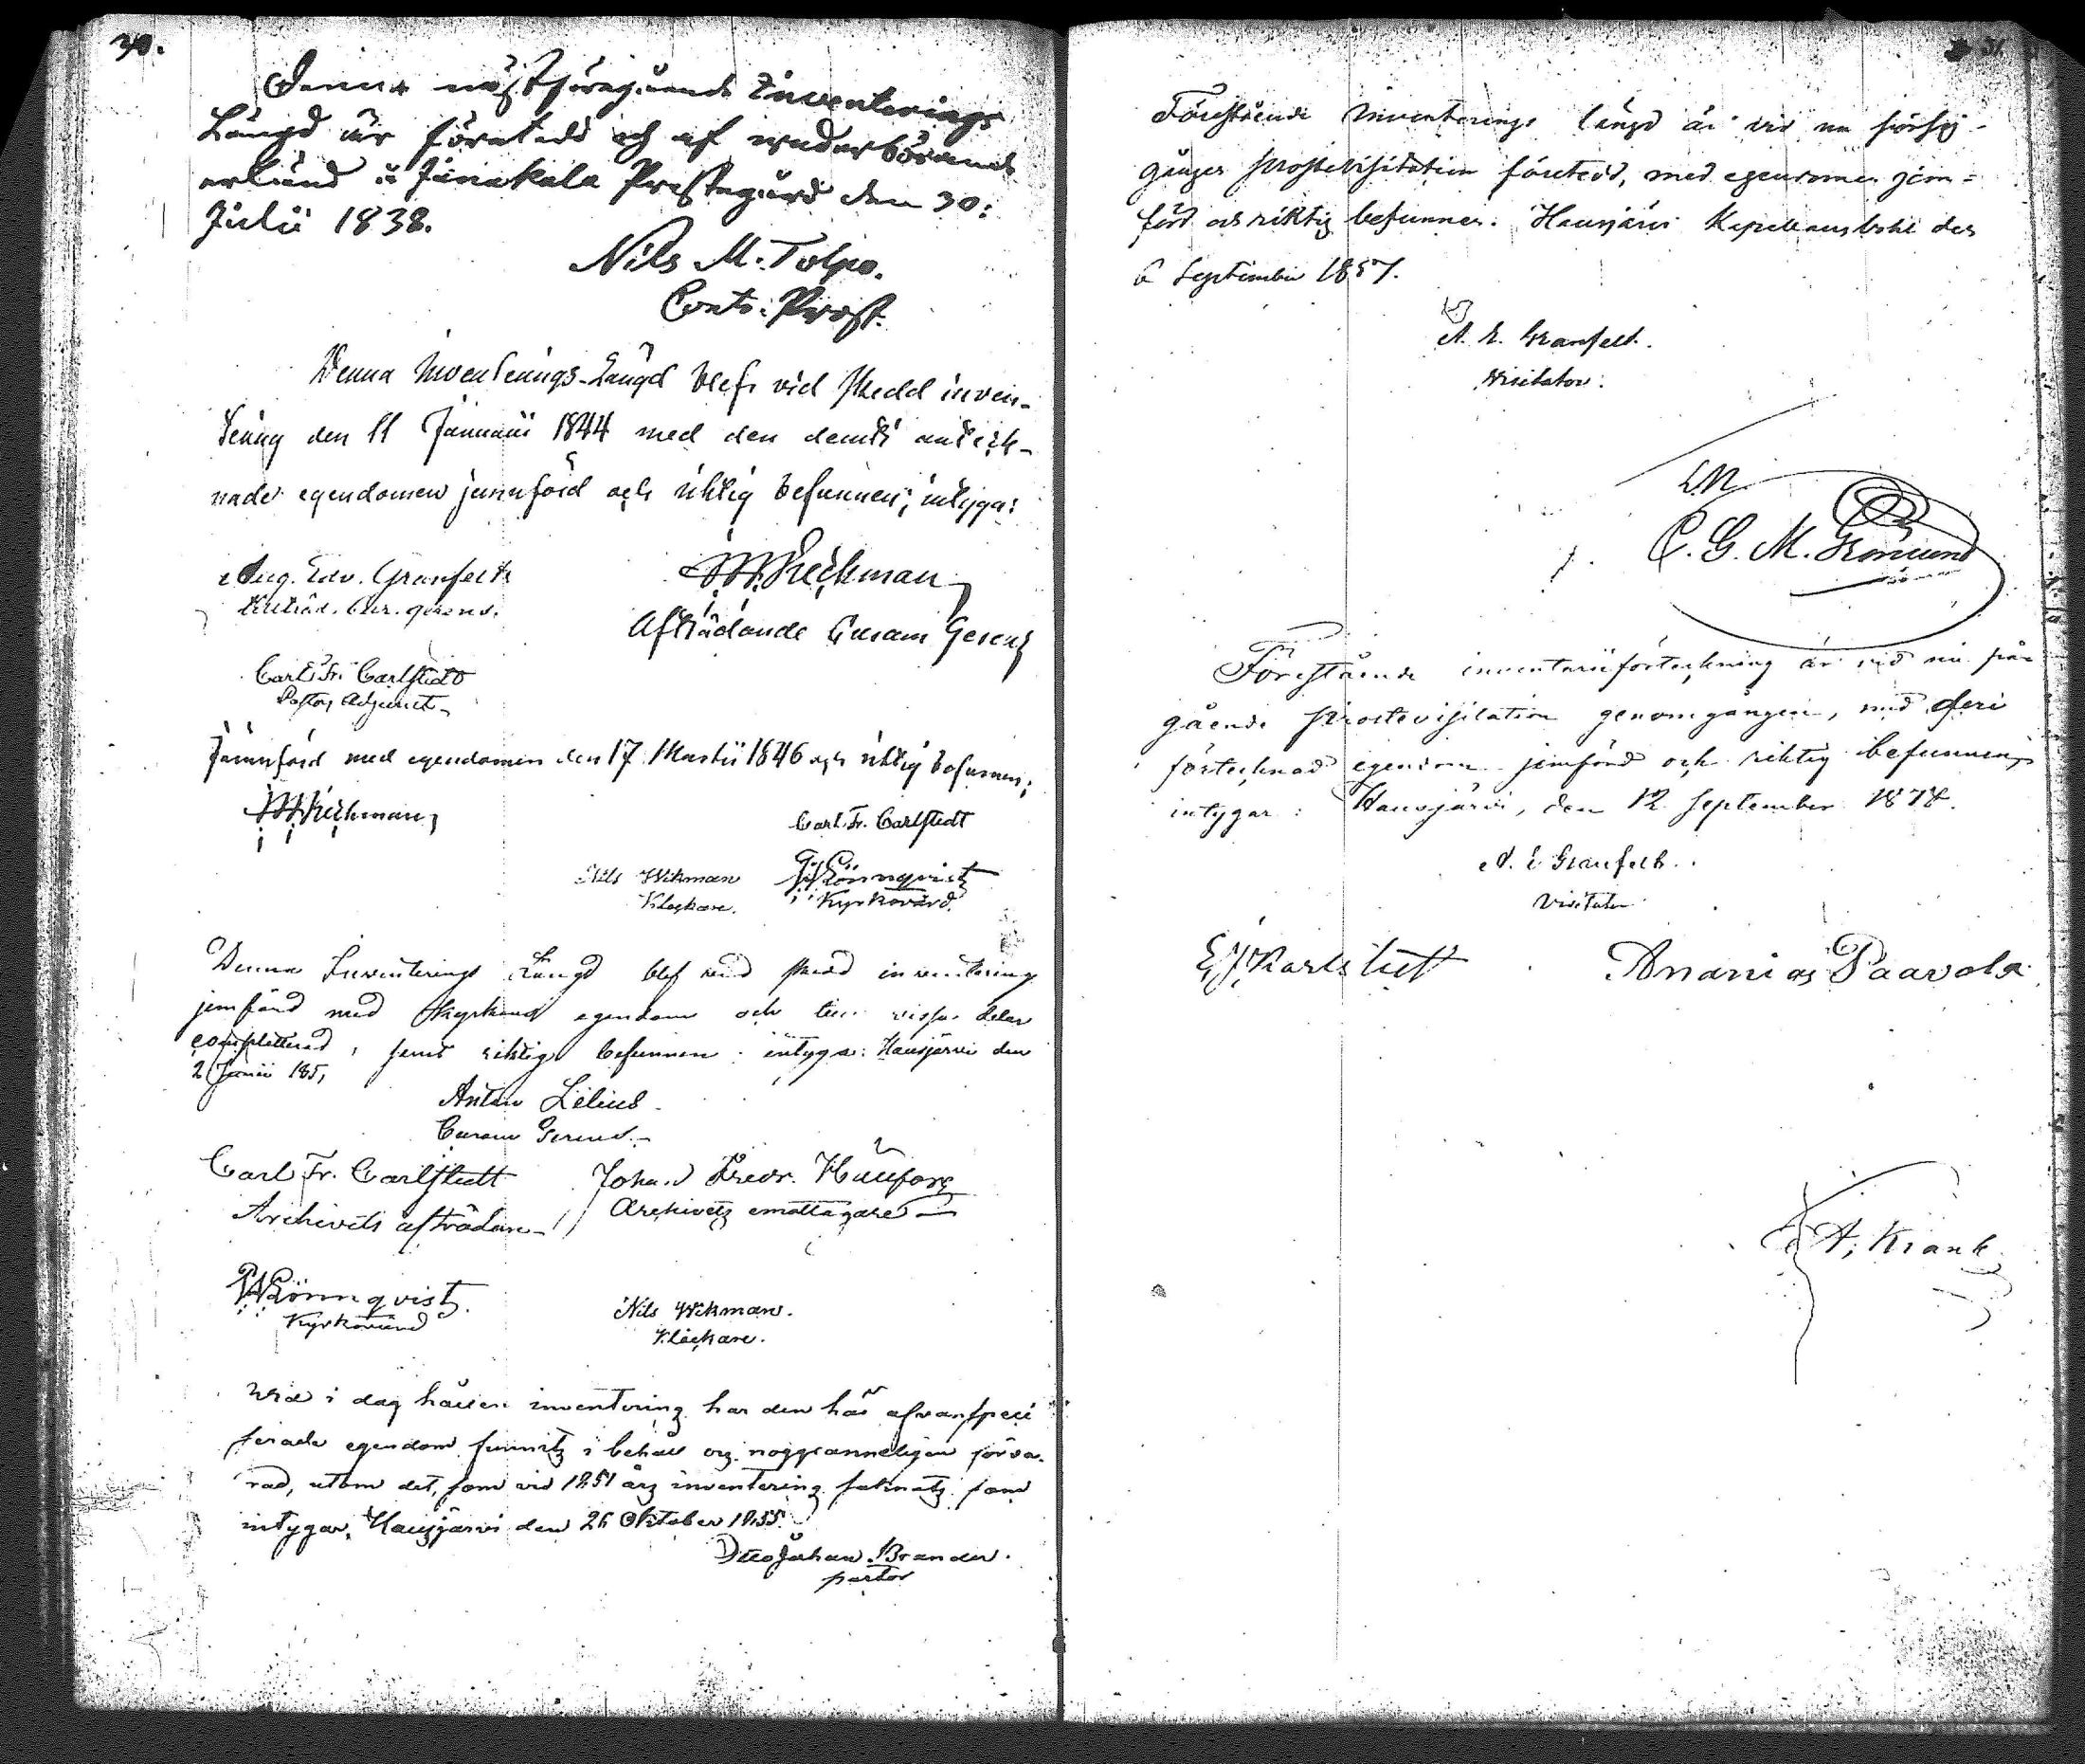 30.
Denna nästföregående Inventerings
Längd är företedd och af vederbörande
erkänd i Janakala Prestegård den 30:
Julii 1838.
Nils M. Tolpo.
Cont: Prost.
Denna Inventerings-Längd blef vid skedd inven-
tering den 11 Januarii 1844 med den deruti anteck-
nade egendomen jemnförd och riktig befunnen; intyga:
Aug. Edv. Granfelt
Tilträd. Cur. gerens.
Afträdande Curam Gerens
Carl Fr. Carlstedt
Pastors Adjunct
Jemnförd med egendomen den 17 Martii 1846 och riktig befunnen;
Carl Fr. Carlstedt
Nils Wikman
Klockare.
Rönnqvist
Kyrkovärd.
Denna Inventerings Längd blef vid skedd inventering
jemförd med Kyrkans egendom och till vissa delar
completterad, samt riktig befunnen: intyga: Hausjärvi den
2 Junii 1851
Anton Lilius
Curam Gerens.
Carl Fr. Carlstedt
Archivets afträdare
Johan Fredr.
Archivets emottagare
Rönnqvist.
Kyrkovärd
Nils Wikman.
Klockare.
Wid i dag hållen inventering har den här ofvan speci
ferade egendom funnits i behåll och noggranneligen förva-
rad, utom det, som vid 1851 års inventering saknats som
intygar, Hausjärvi den 26 Oktober 1855.
Otto Johan Brander.
pastor
31.
Förestående Inventerings längd är vid nu försig-
gången prostevisitation företedd, med egendomen jem=
förd och riktig befunnen. Hausjärvi Kapellansbohl den
6 September 1857.
A. E. Granfelt.
Visitator.
C. G. M.
Förestående inventariiförteckning är vid nu på-
gående prostevisitation genomgången, med deri
förtecknad egendom jemförd och riktig befunnen,
intygar: Hausjärvi, den 12 September 1878.
A. E. Granfelt.
Visitator
E J Karlstedt
Ananias Paavola
A. Krank